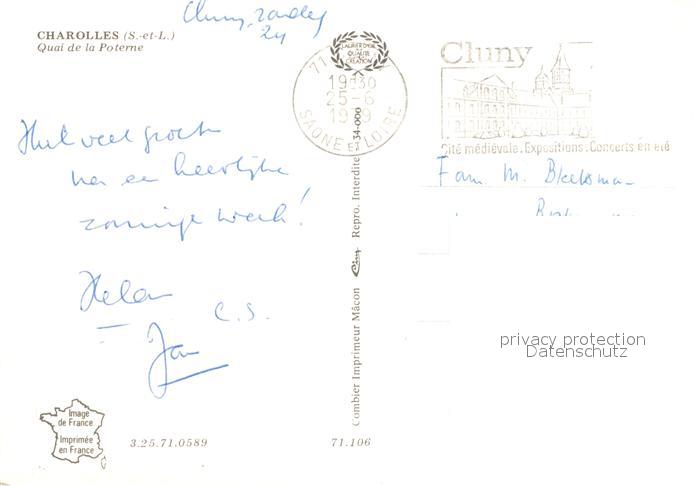 CHAROLLES (S.-et-L.)
Quai de la Poterne
Cluny, zondag
24
LAURIER D'OR
DE LA
QUALITÉ
CRÉATION
71
19H30
25-6
19 9
SAONE ET LOIRE
Cluny
Cité médiévale. Expositions. Concerts en été
Met veel groeten
na een heerlijke
zonnige week!
Helen
Jan
C.S.
Fam. M.
Combier Imprimeur Mâcon Cim Repro. Interdite 34-000
privacy protection
Datenschutz
Image
de France
Imprimée
en France
3.25.71.0589
71.106